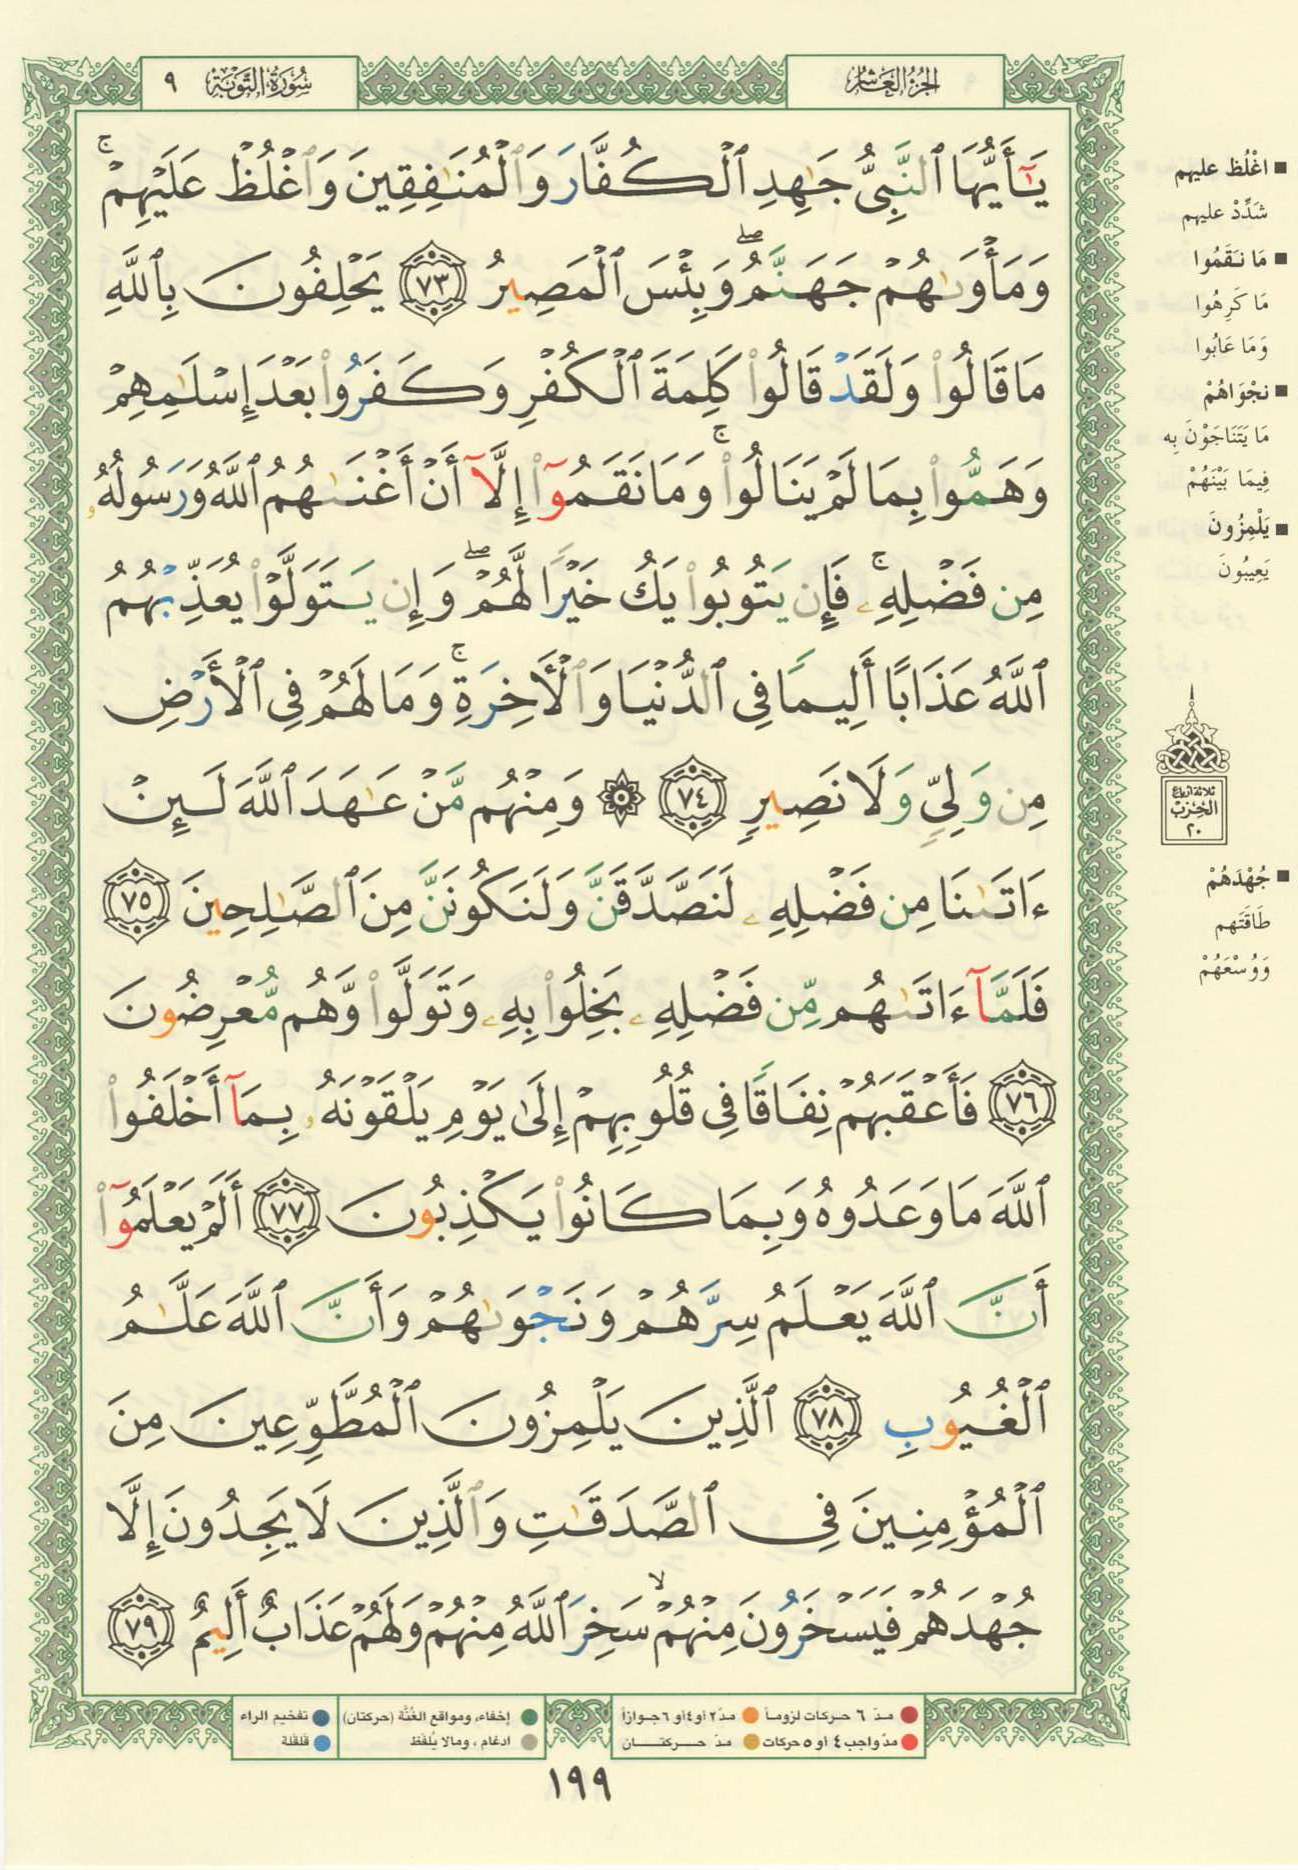 الجزء العاشر
سورة التوبة ٩
يَـٰٓأَيُّهَا ٱلنَّبِىُّ جَـٰهِدِ ٱلْكُفَّارَ وَٱلْمُنَـٰفِقِينَ وَٱغْلُظْ عَلَيْهِمْ ۚ
وَمَأْوَىٰهُمْ جَهَنَّمُ ۖ وَبِئْسَ ٱلْمَصِيرُ ﴿٧٣﴾ يَحْلِفُونَ بِٱللَّهِ
مَا قَالُوا۟ وَلَقَدْ قَالُوا۟ كَلِمَةَ ٱلْكُفْرِ وَكَفَرُوا۟ بَعْدَ إِسْلَـٰمِهِمْ
وَهَمُّوا۟ بِمَا لَمْ يَنَالُوا۟ ۚ وَمَا نَقَمُوٓا۟ إِلَّآ أَنْ أَغْنَىٰهُمُ ٱللَّهُ وَرَسُولُهُۥ
مِن فَضْلِهِۦ ۚ فَإِن يَتُوبُوا۟ يَكُ خَيْرًا لَّهُمْ ۖ وَإِن يَتَوَلَّوْا۟ يُعَذِّبْهُمُ
ٱللَّهُ عَذَابًا أَلِيمًا فِى ٱلدُّنْيَا وَٱلْأَخِرَةِ ۚ وَمَا لَهُمْ فِى ٱلْأَرْضِ
مِن وَلِىٍّ وَلَا نَصِيرٍ ﴿٧٤﴾ ۞ وَمِنْهُم مَّنْ عَـٰهَدَ ٱللَّهَ لَئِنْ
ءَاتَىٰنَا مِن فَضْلِهِۦ لَنَصَّدَّقَنَّ وَلَنَكُونَنَّ مِنَ ٱلصَّـٰلِحِينَ ﴿٧٥﴾
فَلَمَّآ ءَاتَىٰهُم مِّن فَضْلِهِۦ بَخِلُوا۟ بِهِۦ وَتَوَلَّوا۟ وَّهُم مُّعْرِضُونَ
﴿٧٦﴾ فَأَعْقَبَهُمْ نِفَاقًا فِى قُلُوبِهِمْ إِلَىٰ يَوْمِ يَلْقَوْنَهُۥ بِمَآ أَخْلَفُوا۟
ٱللَّهَ مَا وَعَدُوهُ وَبِمَا كَانُوا۟ يَكْذِبُونَ ﴿٧٧﴾ أَلَمْ يَعْلَمُوٓا۟
أَنَّ ٱللَّهَ يَعْلَمُ سِرَّهُمْ وَنَجْوَىٰهُمْ وَأَنَّ ٱللَّهَ عَلَّـٰمُ
ٱلْغُيُوبِ ﴿٧٨﴾ ٱلَّذِينَ يَلْمِزُونَ ٱلْمُطَّوِّعِينَ مِنَ
ٱلْمُؤْمِنِينَ فِى ٱلصَّدَقَـٰتِ وَٱلَّذِينَ لَا يَجِدُونَ إِلَّا
جُهْدَهُمْ فَيَسْخَرُونَ مِنْهُمْ ۙ سَخِرَ ٱللَّهُ مِنْهُمْ وَلَهُمْ عَذَابٌ أَلِيمٌ ﴿٧٩﴾
■ اغْلُظ عليهم
شَدِّدْ عليهم
■ مَا نَقَمُوا
مَا كَرِهُوا
وَمَا عَابُوا
■ نجْوَاهُمْ
مَا يَتَنَاجَوْنَ بِه
فِيمَا بَيْنَهُمْ
■ يَلْمِزُونَ
يَعِيبُونَ
ثلاثة أرباع
الحزب
٢٠
■ جُهْدَهُمْ
طَاقَتَهم
وَوُسْعَهُمْ
مدّ ٦ حركات لزوماً
مدّ ٢ أو ٤ أو ٦ جوازاً
مدّ واجب ٤ أو ٥ حركات
مدّ حركتان
إخفاء، ومواقع الغُنَّة (حركتان)
تفخيم الراء
ادغام، ومالا يُلفَظ
قلقلة
١٩٩